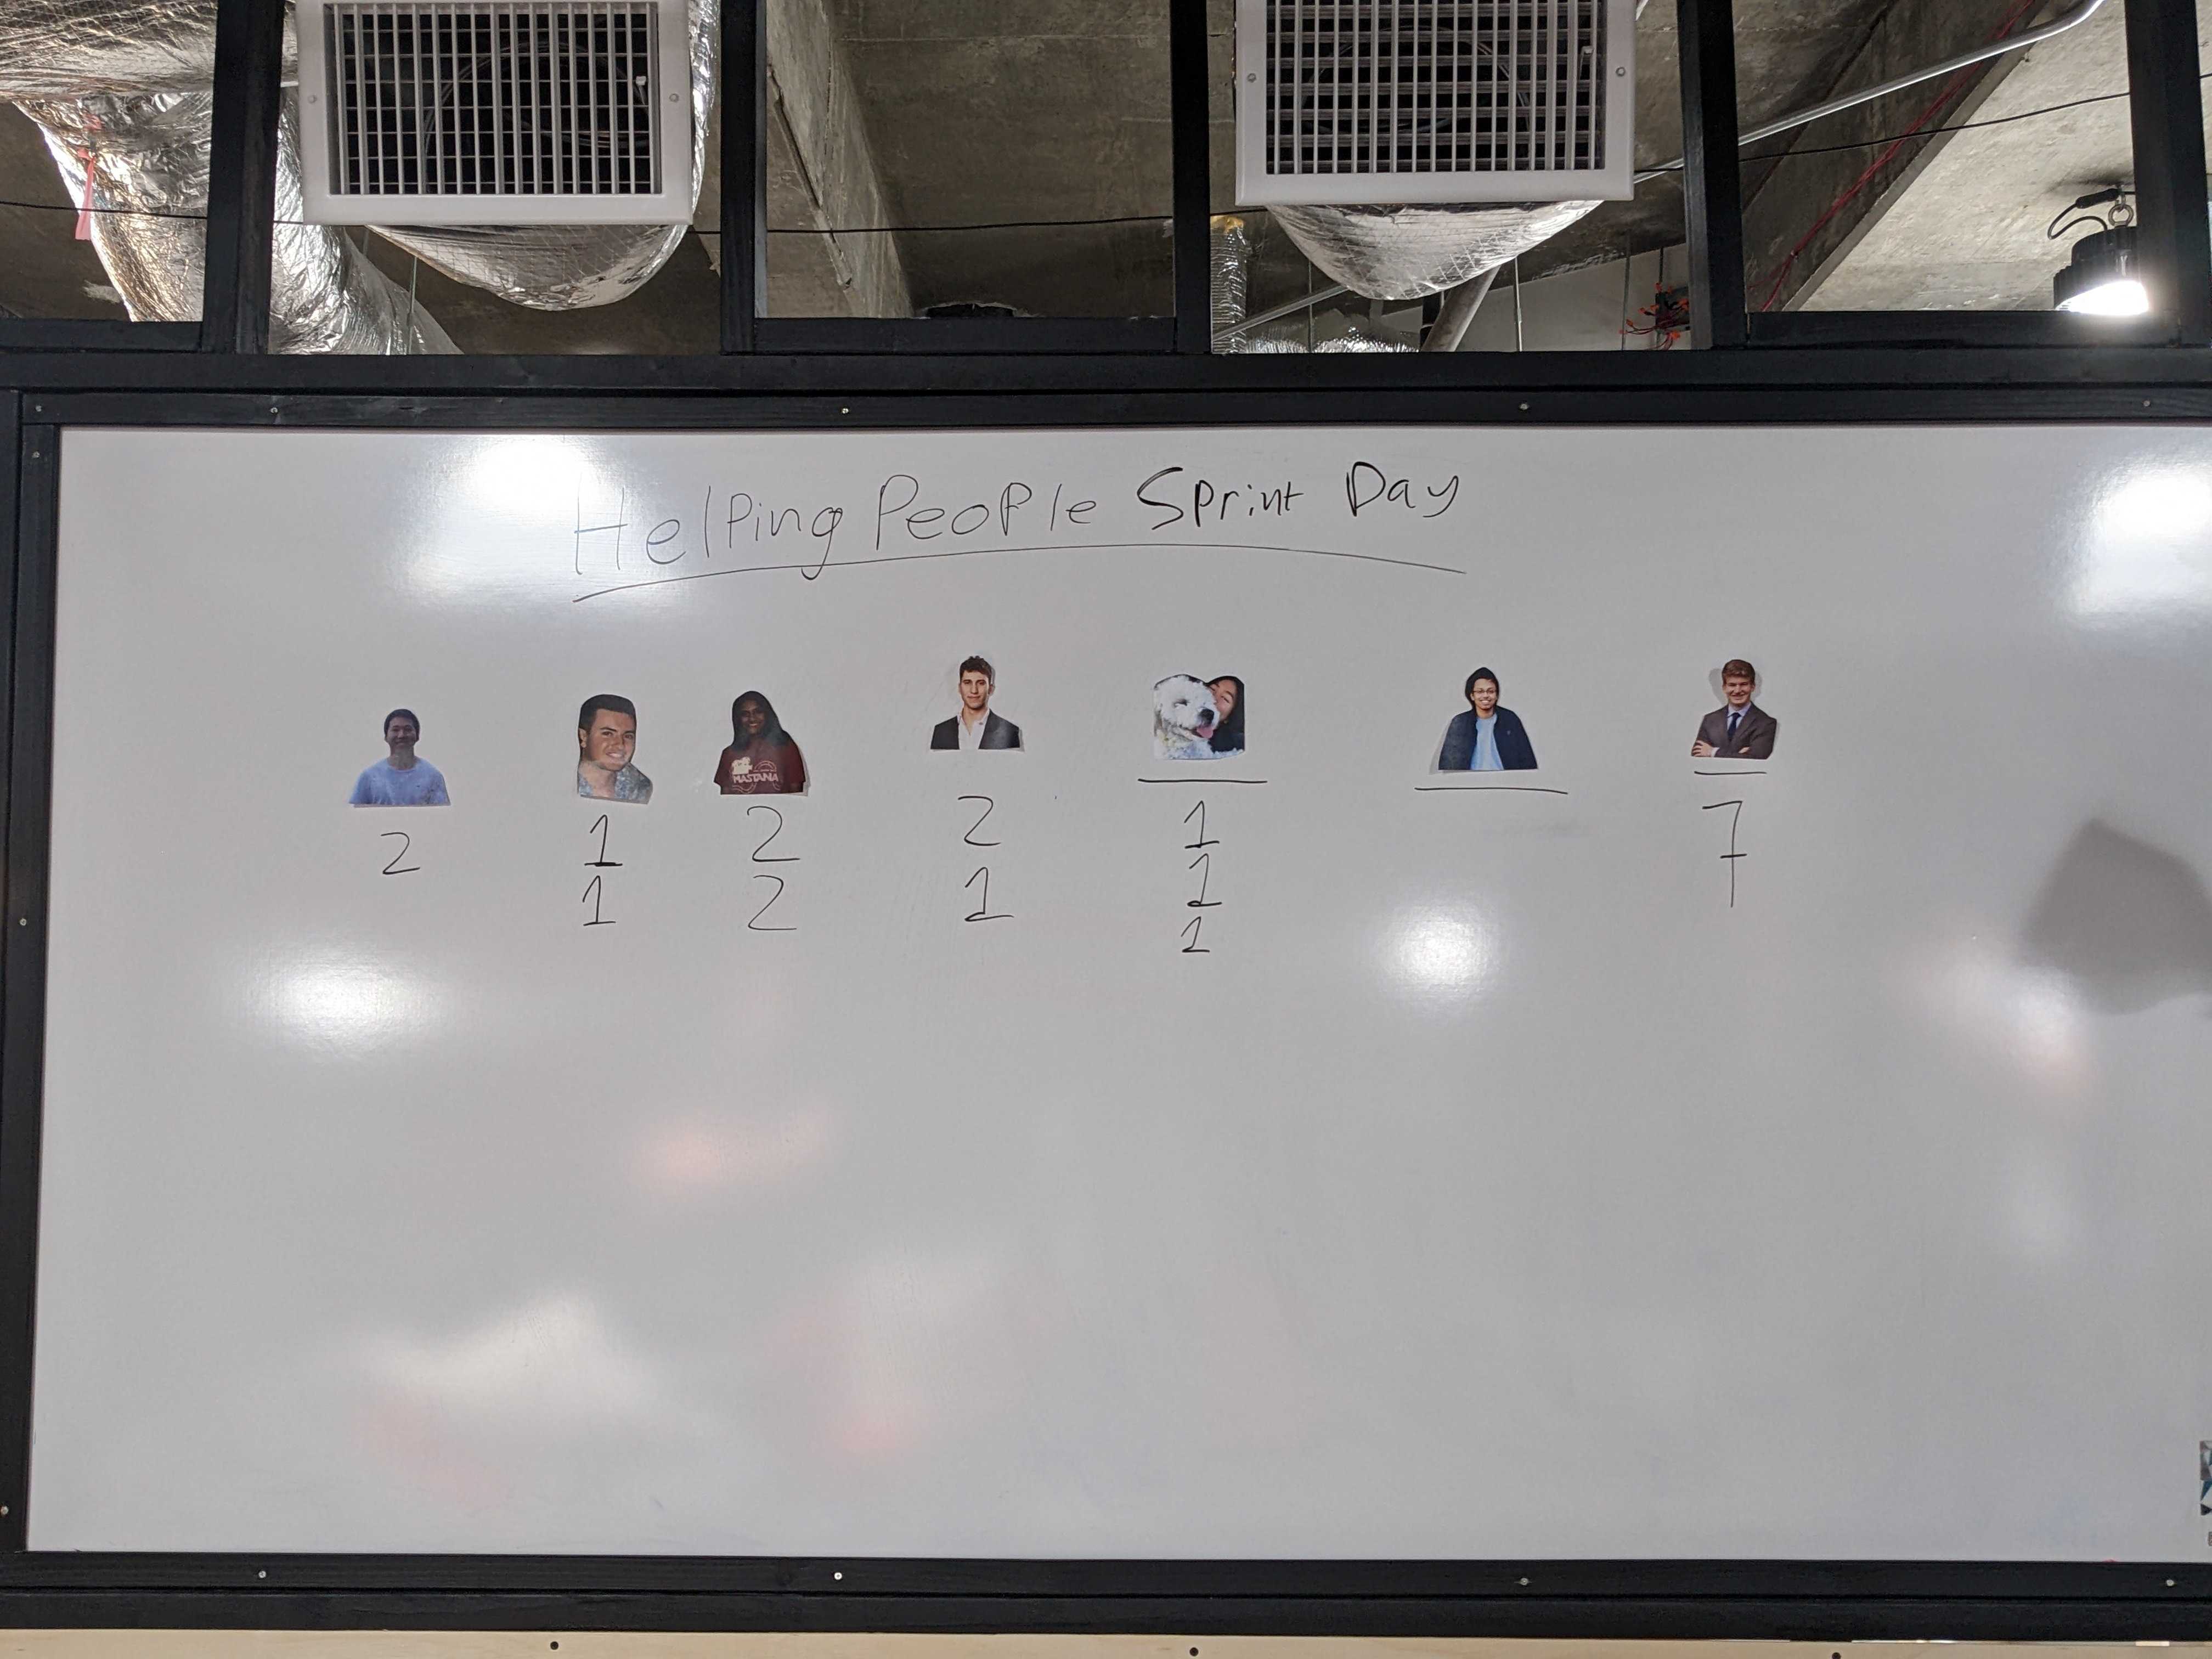 Helping People Sprint Day
MASTANA
2 1 2 2 1 7
1 2 1 1
1